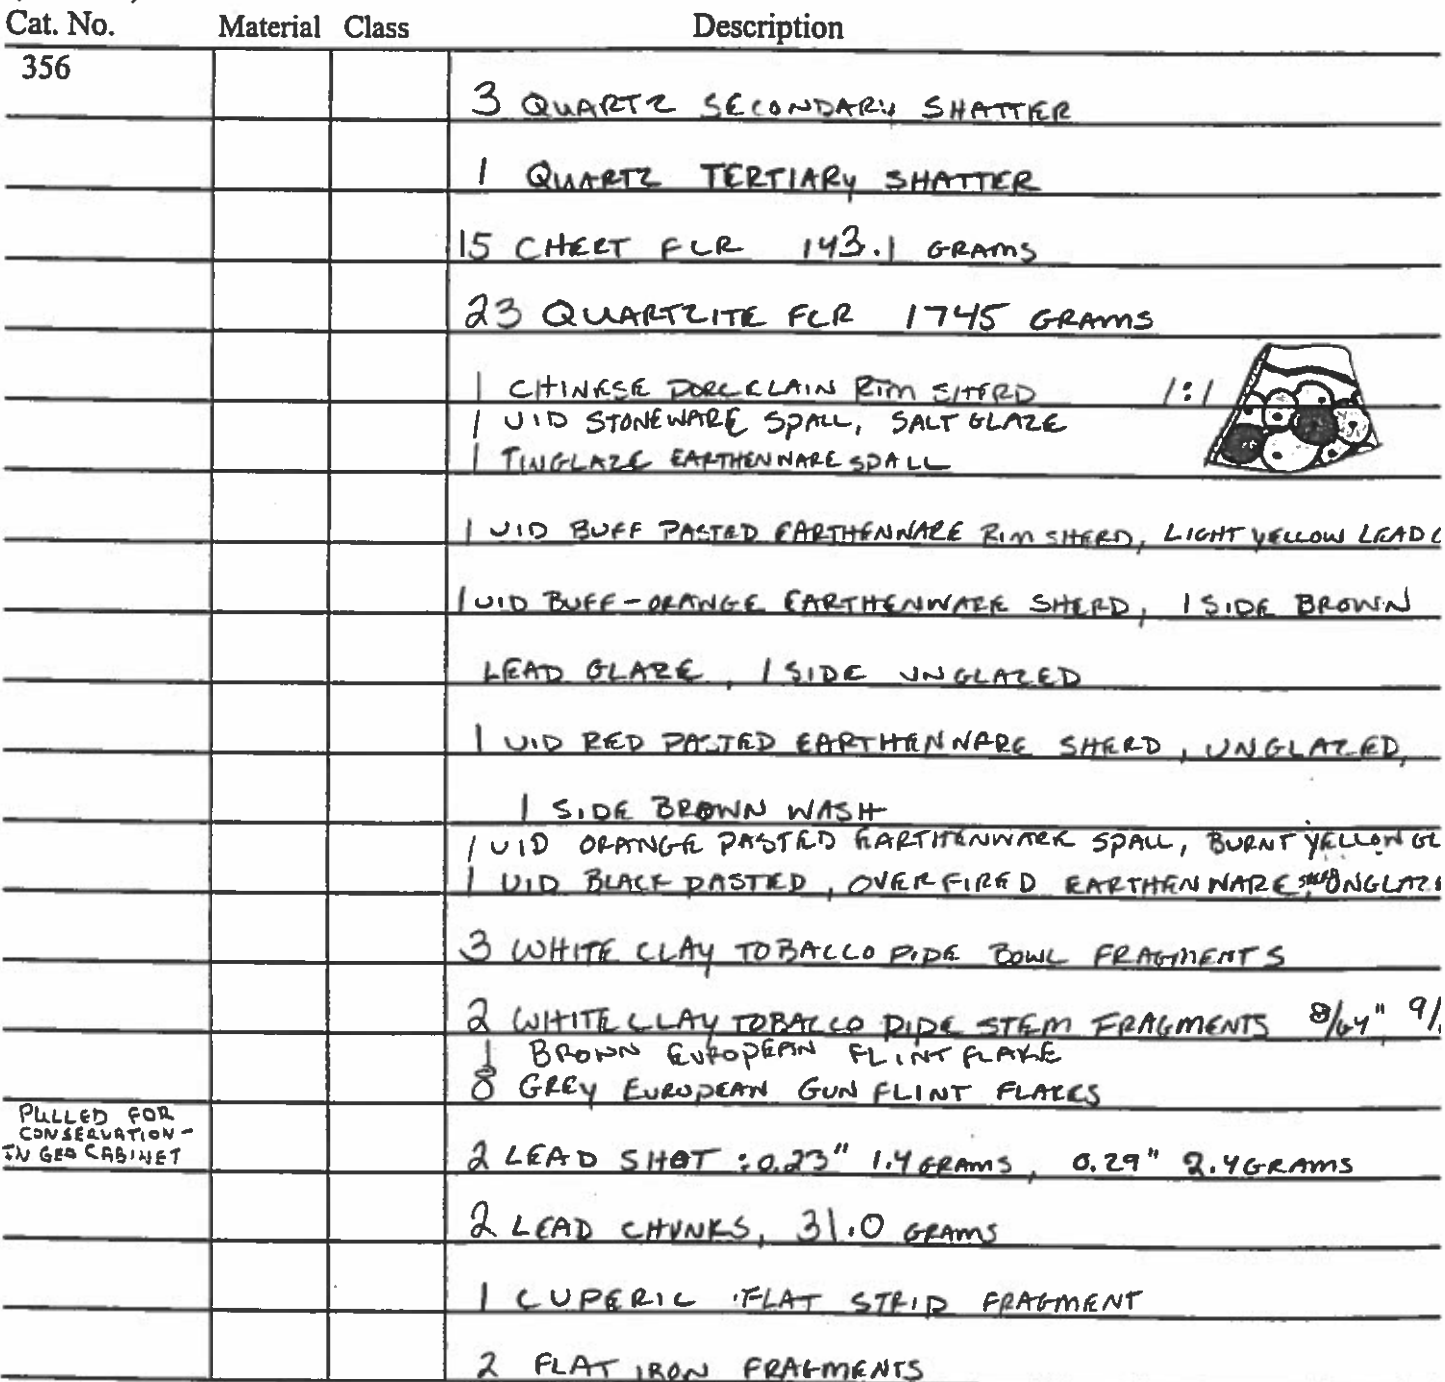 Cat. No. Material Class Description
356
3 QUARTZ SECONDARY SHATTER
1 QUARTZ TERTIARY SHATTER
15 CHERT FCR 143.1 GRAMS
23 QUARTZITE FCR 1745 GRAMS
1 CHINESE PORCELAIN RIM SHERD 1:1
1 UID STONEWARE SPALL, SALT GLAZE
1 TINGLAZE EARTHENWARE SPALL
1 UID BUFF PASTED EARTHENWARE RIM SHERD, LIGHT YELLOW LEAD
1 UID BUFF-ORANGE EARTHENWARE SHERD, 1 SIDE BROWN
LEAD GLAZE, 1 SIDE UNGLAZED
1 UID RED PASTED EARTHENWARE SHERD, UNGLAZED,
1 SIDE BROWN WASH
1 UID ORANGE PASTED EARTHENWARE SPALL, BURNT YELLOW GL
1 UID BLACK PASTED, OVERFIRED EARTHENWARE UNGLAZE
3 WHITE CLAY TOBACCO PIPE BOWL FRAGMENTS
2 WHITE CLAY TOBACCO PIPE STEM FRAGMENTS 8/64" 9/
1 BROWN EUROPEAN FLINT FLAKE
8 GREY EUROPEAN GUN FLINT FLAKES
PULLED FOR
CONSERVATION -
IN GEO CABINET
2 LEAD SHOT: 0.23" 1.4 GRAMS, 0.29" 2.4 GRAMS
2 LEAD CHUNKS, 31.0 GRAMS
1 CUPERIC FLAT STRIP FRAGMENT
2 FLAT IRON FRAGMENTS